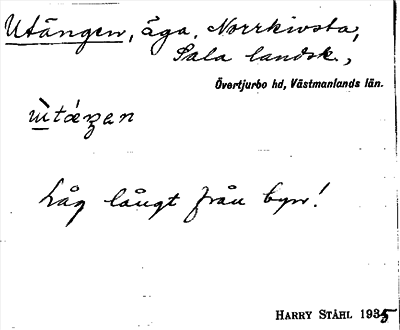 Utängen, äga, Norrkivsta,
Sala landsk.,
Övertjurbo hd, Västmanlands län.
Låg långt från byn!
HARRY STÅHL 1935